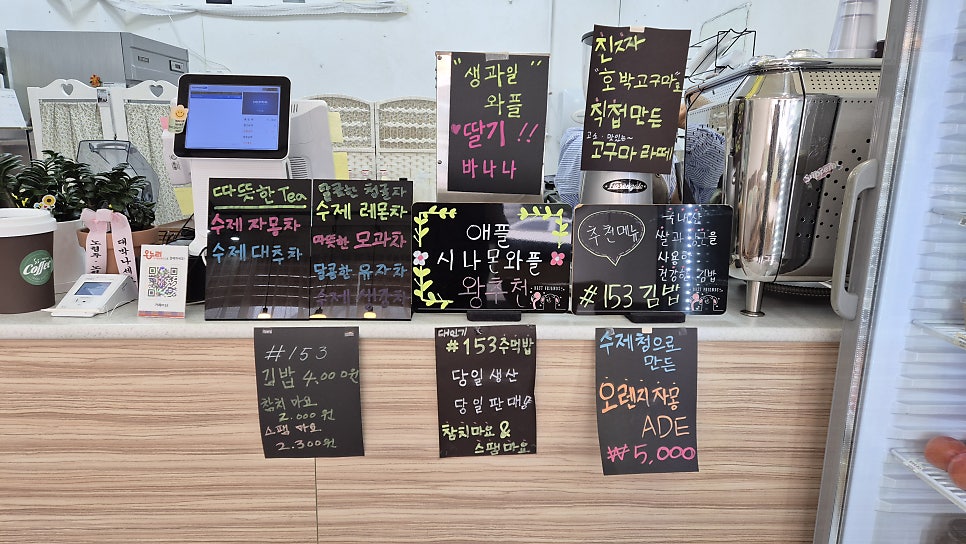 "생과일"
와플
딸기!!
바나나
진짜
"호박고구마"로
직접만든
고소·맛있는~
고구마라떼
따뜻한 Tea
수제 자몽차
수제 대추차
달콤한 청귤차
수제 레몬차
따뜻한 모과차
달콤한 유자차
수제 생강차
애플
시나몬와플
왕추천
BEST FRIENDS
추천메뉴
국내산
쌀과
사용한
건강한 김밥
#153 김밥
BEST FRIENDS
Coffee
대박나세
#153
김밥 4.000원
참치 마요
2.000원
스팸 마요
2.300원
대인기
#153주먹밥
당일 생산
당일 판매
참치마요 &
스팸마요
수제청으로
만든
오렌지자몽
ADE
₩5,000